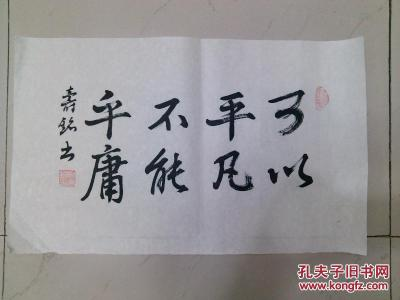 可以
平凡
不能
平庸
壽銘书
孔夫子旧书网
www.kongfz.com